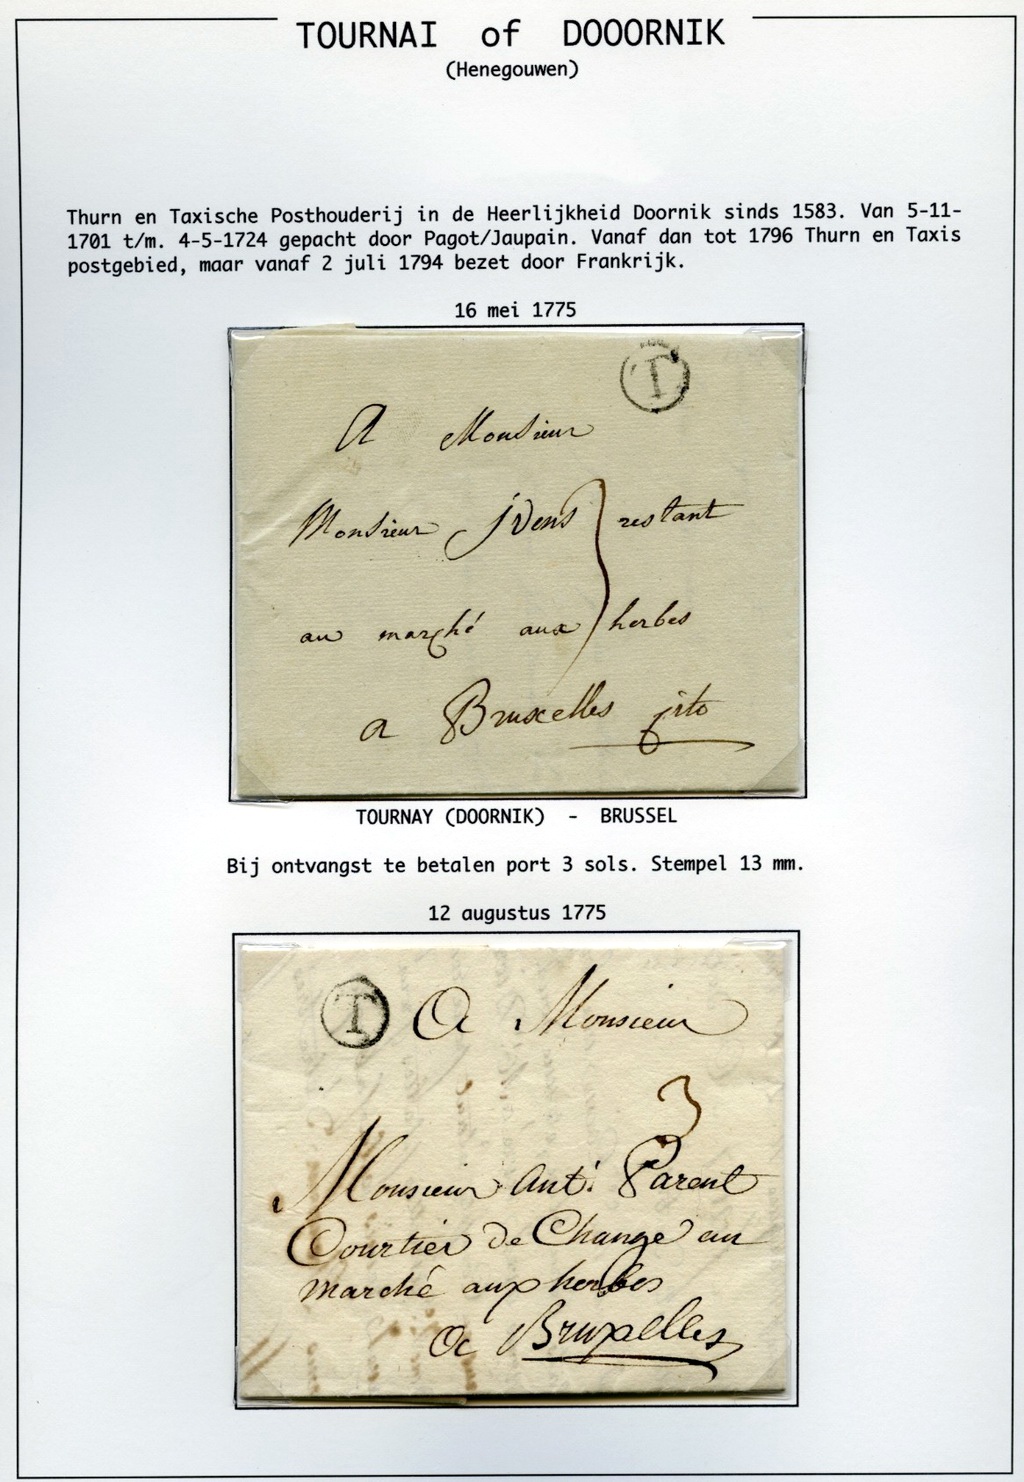 TOURNAI of DOOORNIK
(Henegouwen)
Thurn en Taxische Posthouderij in de Heerlijkheid Doornik sinds 1583. Van 5-11-
1701 t/m. 4-5-1724 gepacht door Pagot/Jaupain. Vanaf dan tot 1796 Thurn en Taxis
postgebied, maar vanaf 2 juli 1794 bezet door Frankrijk.
16 mei 1775
T
A Monsieur
Monsieur restant
3
au marché aux herbes
a Bruxelles
TOURNAY (DOORNIK) - BRUSSEL
Bij ontvangst te betalen port 3 sols. Stempel 13 mm.
12 augustus 1775
T A Monsieur
3
Monsieur Ant. Parent
Courtier de Change au
marché aux herbes
A Bruxelles